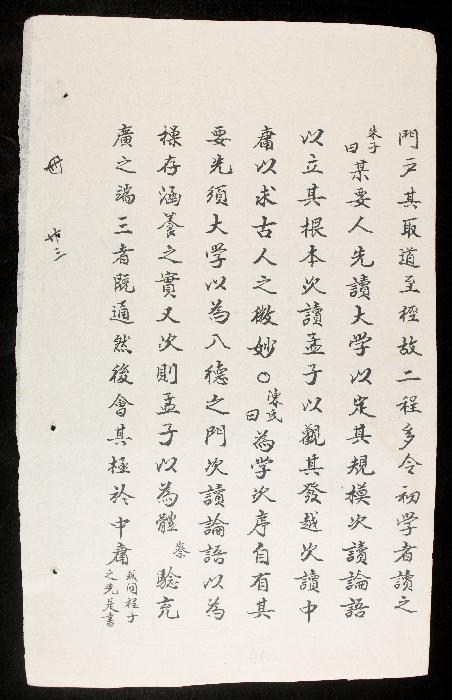 門戸其取道至徑故二程多令初学者讀之
朱子曰某要人先讀大学以定其規模次讀論語
以立其根本次讀孟子以觀其發越次讀中
庸以求古人之微妙○陳氏曰為学次序自有其
要先須大学以為入德之門次讀論語以為
操存涵養之實又次則孟子以為體察驗充
廣之端三者既通然後會其極於中庸或問程子之先是書
廿三